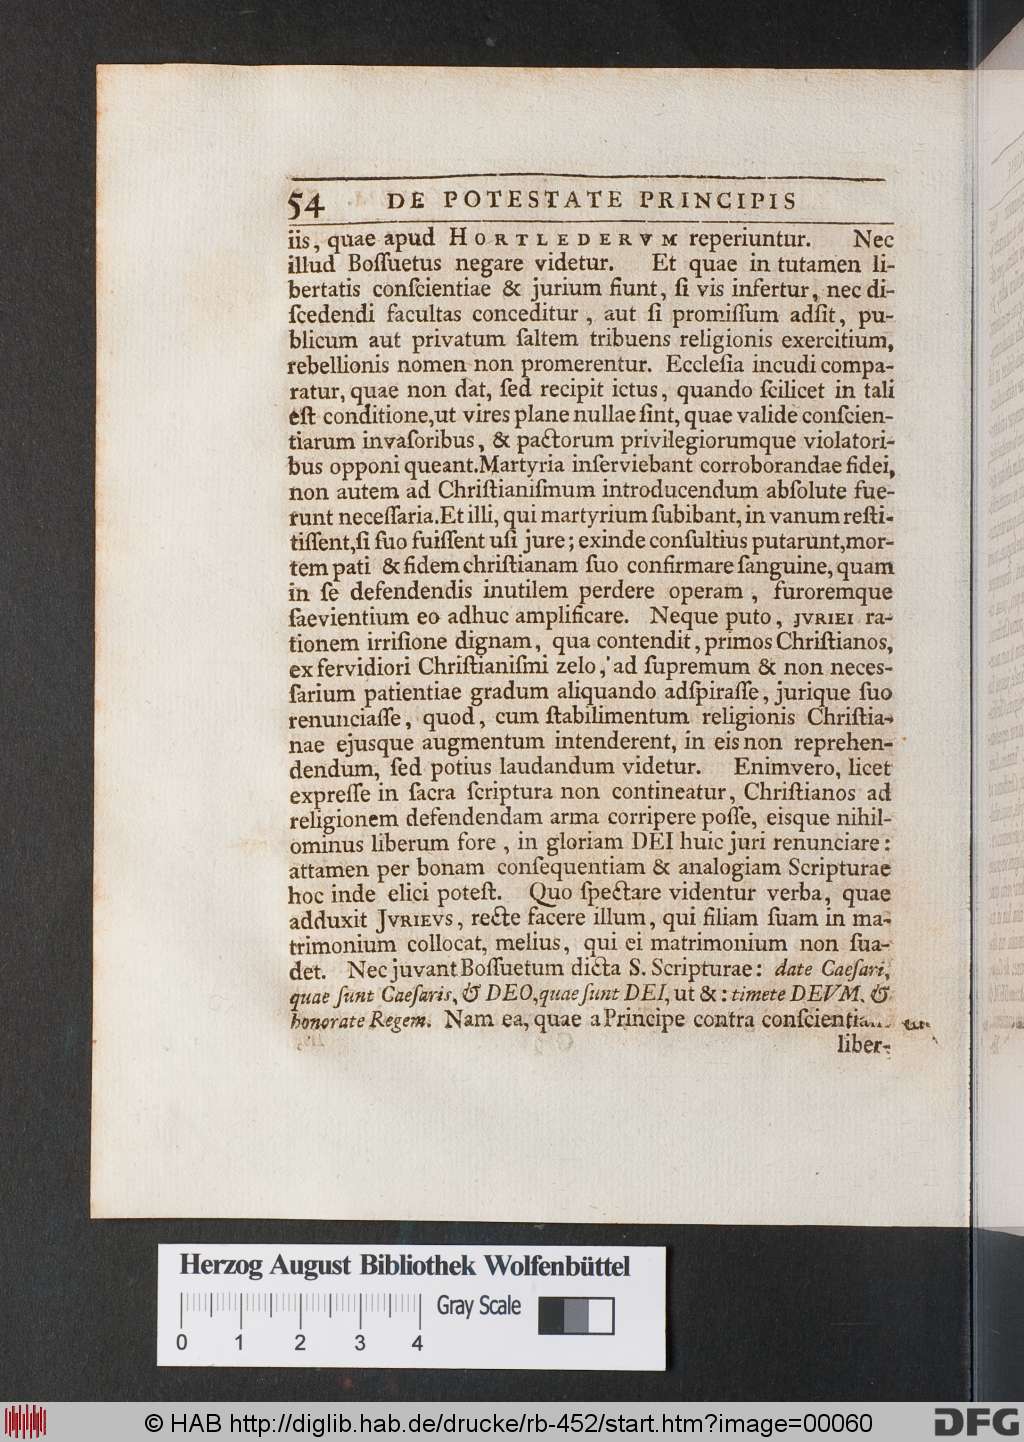 54 DE POTESTATE PRINCIPIS
iis, quae apud HORTLEDERVM reperiuntur. Nec
illud Boſſuetus negare videtur. Et quae in tutamen li-
bertatis conſcientiae & jurium fiunt, ſi vis infertur, nec di-
ſcedendi facultas conceditur, aut ſi promiſſum adſit, pu-
blicum aut privatum ſaltem tribuens religionis exercitium,
rebellionis nomen non promerentur. Eccleſia incudi compa-
ratur, quae non dat, ſed recipit ictus, quando ſcilicet in tali
eſt conditione, ut vires plane nullae ſint, quae valide conſcien-
tiarum invaſoribus, & pactorum privilegiorumque violatori-
bus opponi queant. Martyria inſerviebant corroborandae fidei,
non autem ad Chriſtianiſmum introducendum abſolute fue-
runt neceſſaria. Et illi, qui martyrium ſubibant, in vanum reſti-
tiſſent, ſi ſuo fuiſſent uſi jure; exinde conſultius putarunt, mor-
tem pati & fidem chriſtianam ſuo confirmare ſanguine, quam
in ſe defendendis inutilem perdere operam, furoremque
ſaevientium eo adhuc amplificare. Neque puto, JVRIEI ra-
tionem irriſione dignam, qua contendit, primos Chriſtianos,
ex fervidiori Chriſtianiſmi zelo, ad ſupremum & non neces-
ſarium patientiae gradum aliquando adſpiraſſe, jurique ſuo
renunciaſſe, quod, cum ſtabilimentum religionis Chriſtia-
nae ejusque augmentum intenderent, in eis non reprehen-
dendum, ſed potius laudandum videtur. Enimvero, licet
expreſſe in ſacra ſcriptura non contineatur, Chriſtianos ad
religionem defendendam arma corripere poſſe, eisque nihil-
ominus liberum fore, in gloriam DEI huic juri renunciare:
attamen per bonam conſequentiam & analogiam Scripturae
hoc inde elici poteſt. Quo ſpectare videntur verba, quae
adduxit JVRIEVS, recte facere illum, qui filiam ſuam in ma-
trimonium collocat, melius, qui ei matrimonium non ſua-
det. Nec juvant Boſſuetum dicta S. Scripturae: date Caeſari,
quae ſunt Caeſaris, & DEO, quae ſunt DEI, ut &: timete DEVM, &
honorate Regem. Nam ea, quae a Principe contra
liber-
Herzog August Bibliothek Wolfenbüttel
Gray Scale
0 1 2 3 4
© HAB http://diglib.hab.de/drucke/rb-452/start.htm?image=00060
DFG